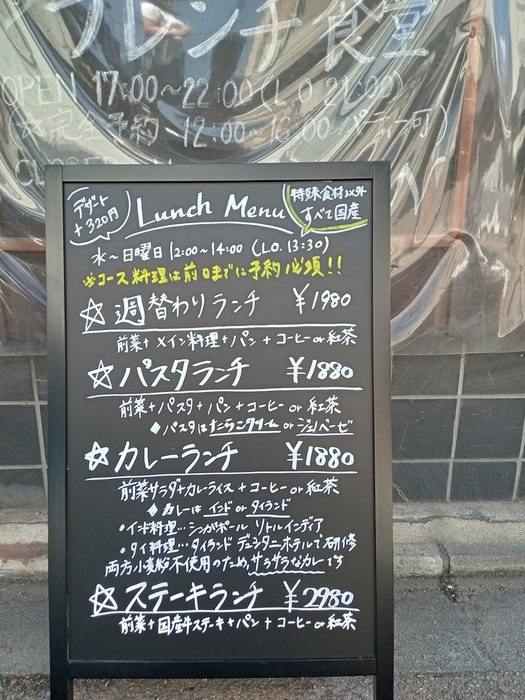 フレンチ食堂
OPEN 17:00〜22:00 (L.O 21:00)
(☆完全予約 12:00〜16:00 パーティー可)
CLOSE
デザート
+320円
Lunch Menu
特殊食材以外
すべて国産
水〜日曜日 12:00〜14:00 (L.O. 13:30)
※コース料理は前日までに予約必須!!
☆週替わりランチ ¥1980
前菜+メイン料理+パン+コーヒーor紅茶
☆パスタランチ ¥1880
前菜+パスタ+パン+コーヒーor紅茶
◆パスタは or ジェノベーゼ
☆カレーランチ ¥1880
前菜サラダ+カレーライス+コーヒーor紅茶
◆カレーは インド or タイランド
・インド料理…シンガポール リトルインディア
・タイ料理…タイランド デュシタニホテルで研修
両方小麦粉不使用のため、サラサラなカレーです
☆ステーキランチ ¥2980
前菜+国産牛ステーキ+パン+コーヒーor紅茶